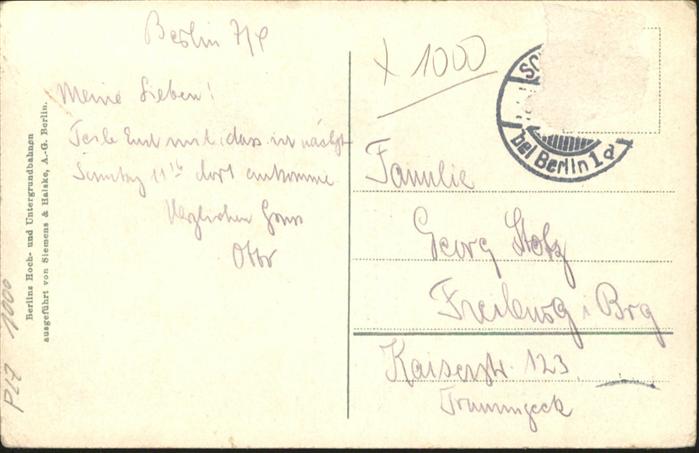 Berlin 7/8
Meine Lieben!
Teile Euch mit, dass ich nächst
Sonntag 11 dort ankomme
Herzlichen Gruss
Otto
Berlins Hoch- und Untergrundbahnen
ausgeführt von Siemens & Halske, A.-G. Berlin.
PL17 1000
x 1000
SC
bei Berlin 1 d
Familie
Georg Stolz
Freiburg i Brg
Kaiserstr. 123